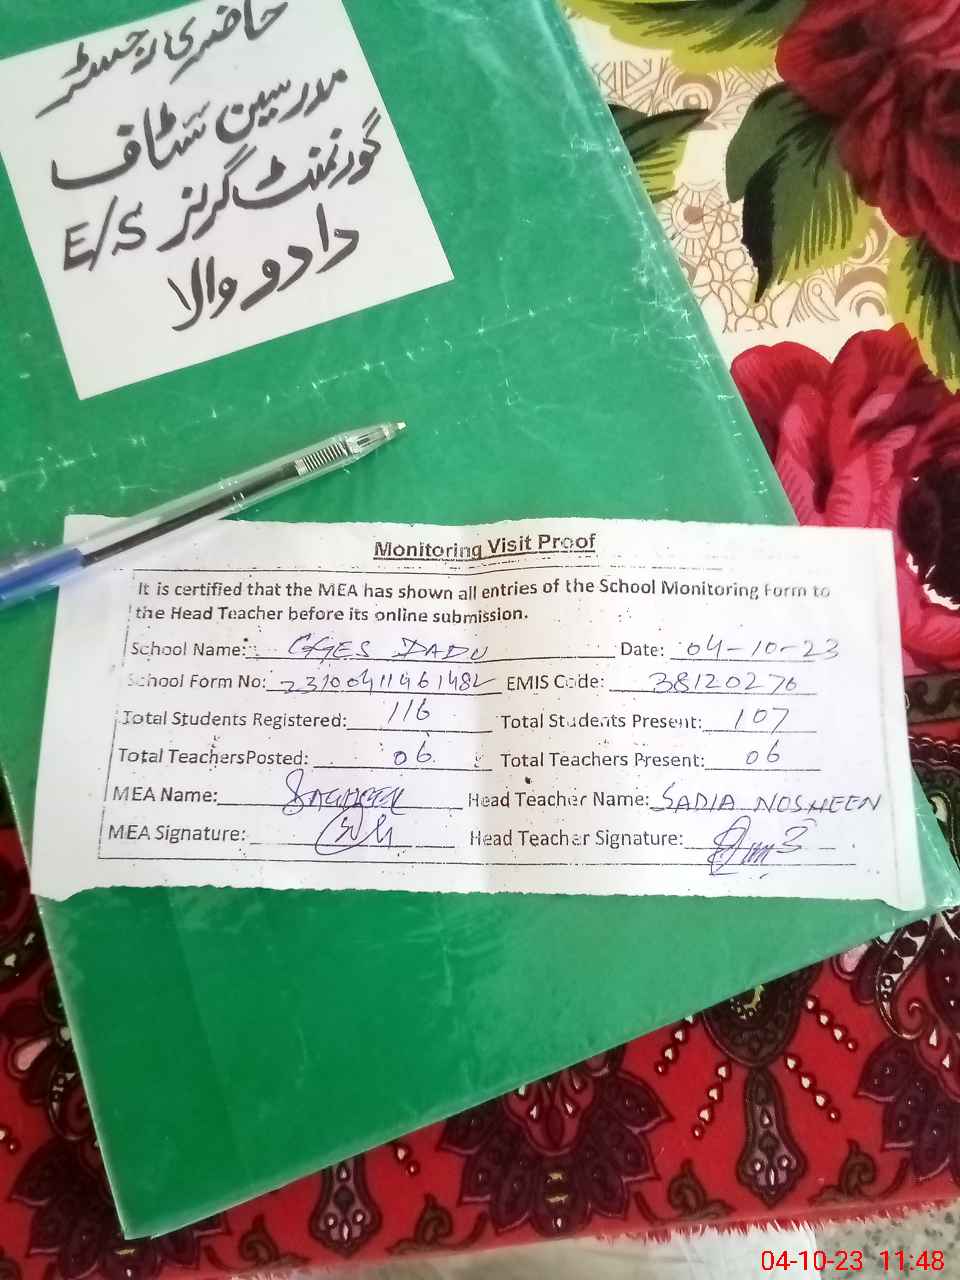 حاضری رجسٹر
مدرسین سٹاف
گورنمنٹ گرلز E/S
دادو والا
Monitoring Visit Proof
It is certified that the MEA has shown all entries of the School Monitoring Form to
the Head Teacher before its online submission.
School Name: GGES DADU Date: 04-10-23
School Form No: EMIS Code: 38120276
Total Students Registered: 116 Total Students Present: 107
Total TeachersPosted: 06 Total Teachers Present: 06
MEA Name: Head Teacher Name: SADIA NOSHEEN
MEA Signature: Head Teacher Signature:
04-10-23 11:48